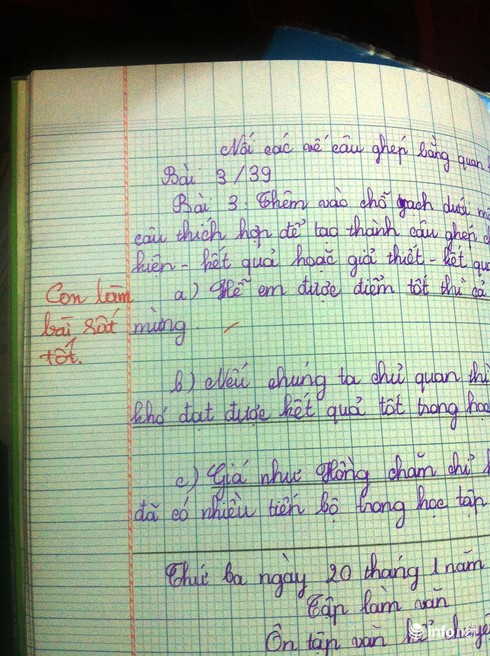 Nối các vế câu ghép bằng quan
Bài 3/39
Bài 3. Thêm vào chỗ gạch dưới
câu thích hợp để tạo thành câu ghép
kiện - kết quả hoặc giả thiết - kết quả
Con làm
bài rất
tốt.
a) Hễ em được điểm tốt thì cả
mừng.
b) Nếu chúng ta chủ quan thì
khó đạt được kết quả tốt trong học
c) Giá như Hồng chăm chỉ
đã có nhiều tiến bộ trong học tập
Thứ ba ngày 20 tháng 1 năm
Tập làm văn
Ôn tập văn kể